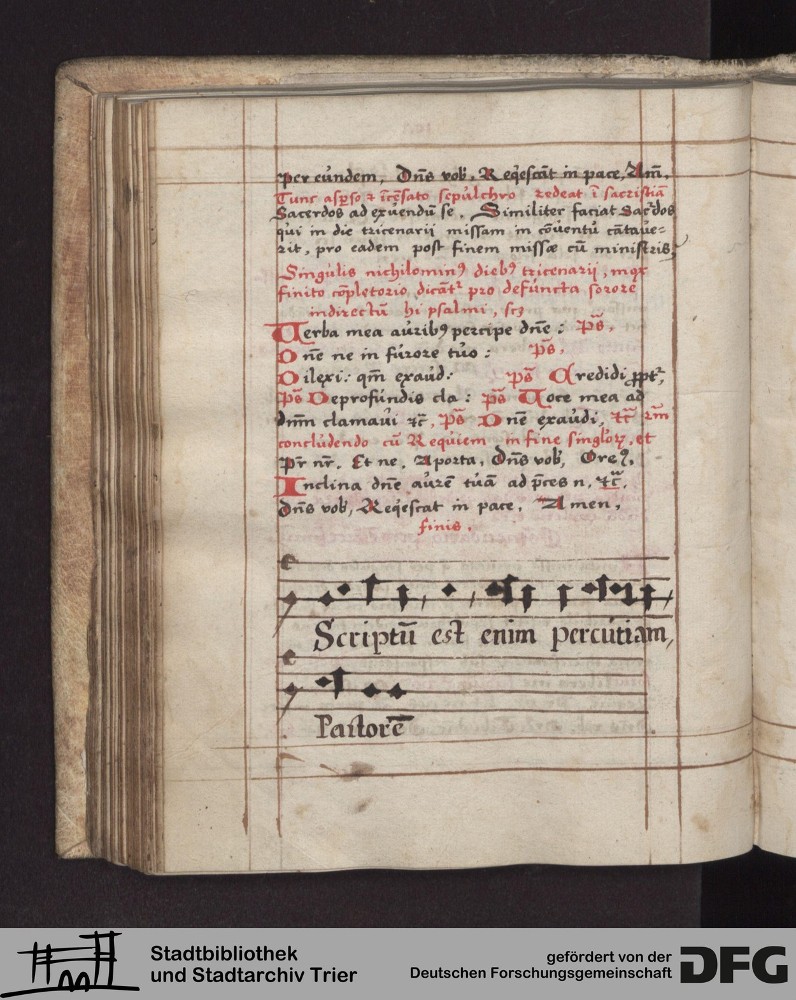 per eundem, Dn̄s vob. Req̇escāt in pace, Am̄.
Tunc asp̱so ⁊ īcēsato sepulchro redeat ī sacristiā
Sacerdos ad exuendū se. Similiter faciat Sac̄dos
qui in die tricenarii missam in cōuentu cātaue=
rit, pro eadem post finem missæ cū ministris,
Singulis nichilominꝰ diebꝰ tricenarij, mox
finito cōpletorio, dicāt᷑ pro defuncta sorore
indirectū hi psalmi, scꝫ
Verba mea auribꝰ percipe dn̄e: Ps̄,
Dn̄e ne in furore tuo: Ps̄,
Dilexi: qm̄ exaud: Ps̄ Credidi ꝓpt᷑,
Ps̄ Deprofundis cla: Ps̄ Voce mea ad
dnm̄ clamaui ⁊c̄, Ps̄ Dn̄e exaudi, ⁊c̄
concludendo cū Requiem in fine singloꝝ, et
Pr̄ nr̄. Et ne. Aporta, Dn̄s vob, Oreꝰ,
Inclina dn̄e aurē tuā ad p̄ces n, ⁊c̄,
Dn̄s vob, Req̇escat in pace, Amen,
finis.
Scriptū est enim percutiam,
Pastorē
Stadtbibliothek
und Stadtarchiv Trier
gefördert von der
Deutschen Forschungsgemeinschaft
DFG